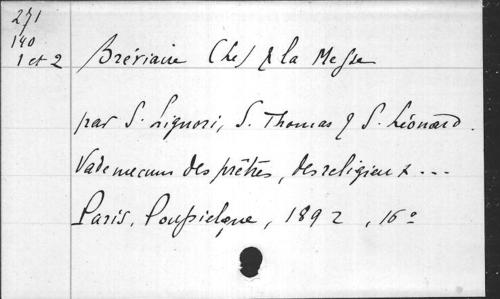 271
140
1 et 2
Bréviaire (le) & la Messe
par S. Liguori, S. Thomas & S. Léonard.
Vade mecum des prêtres, des religieux ...
Paris, Poussielgue, 1892, 16°